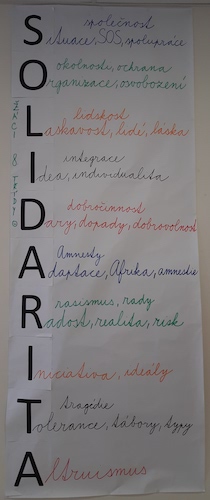 společnost
Situace, SOS, spolupráce
okolnosti, ochrana
Organizace, osvobození
lidskost
Laskavost, lidé, láska
integrace
Idea, individualita
dobročinnost
Dary, dopady, dobrovolnost
Amnesty
Adaptace, Afrika, amnestie
rasismus, rady
Radost, realita, risk
Iniciativa, ideály
tragédie
Tolerance, tábory, typy
Altruismus
ŽÁCI 8